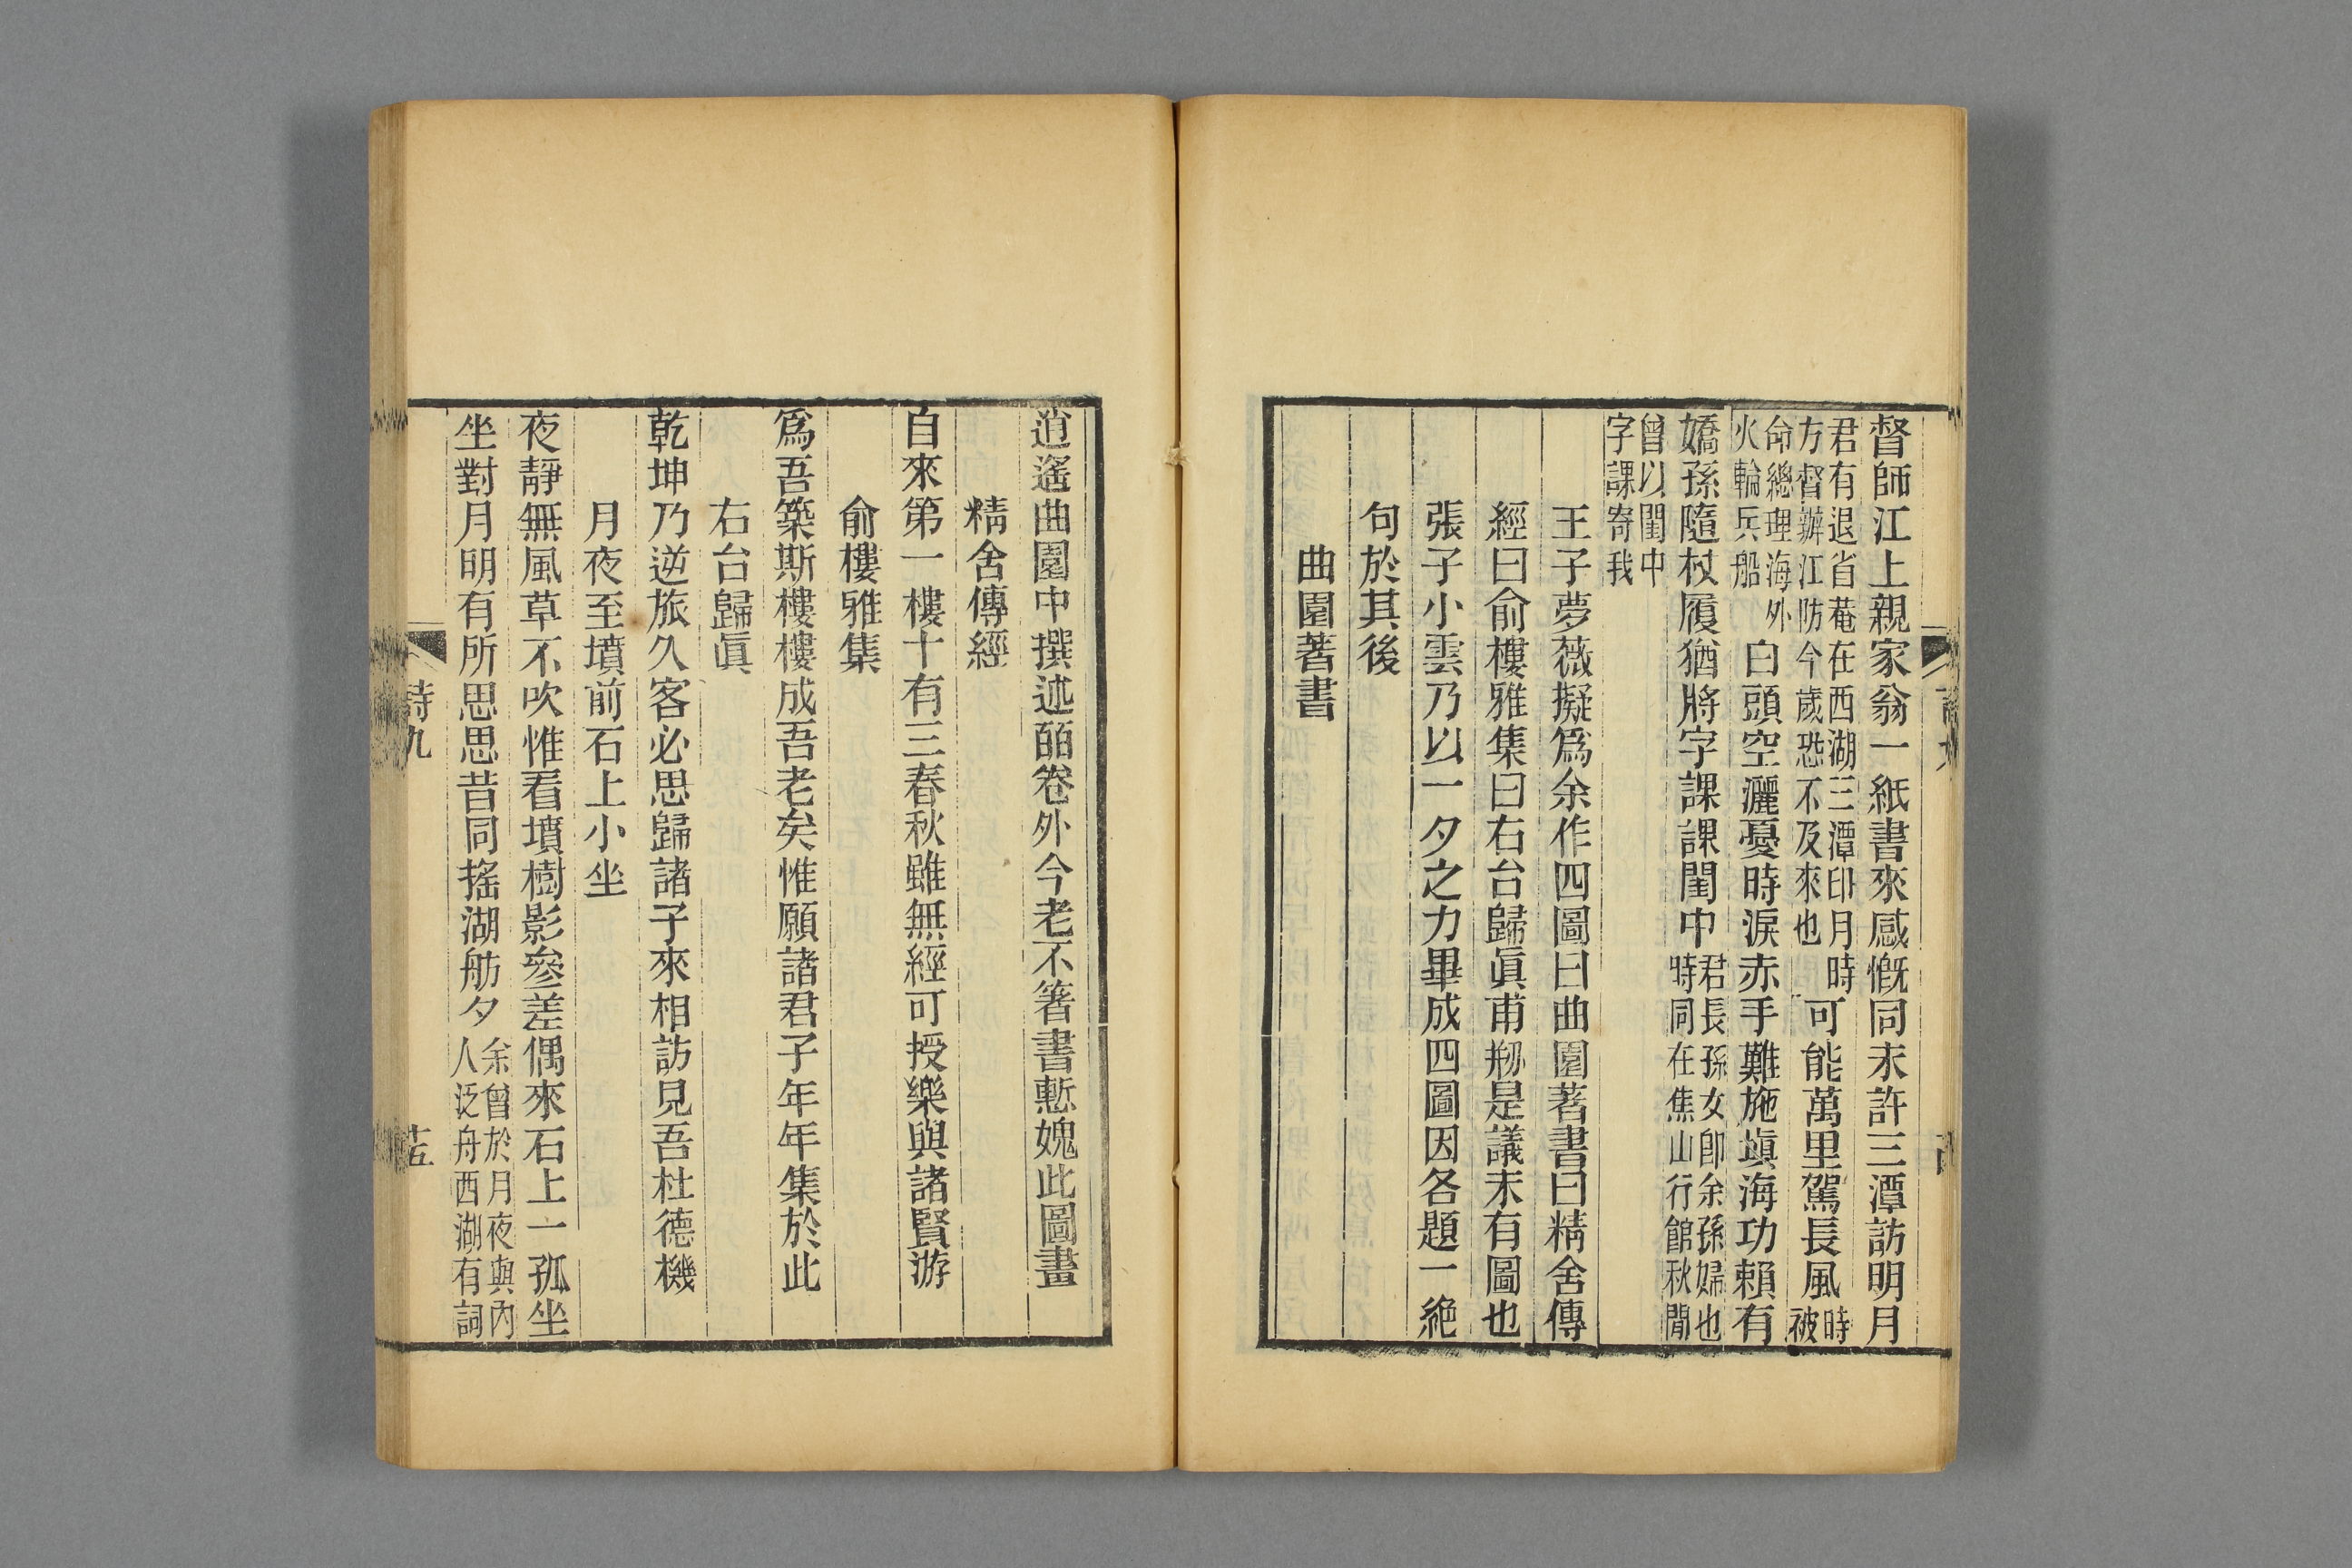 督師江上親家翁一紙書來感慨同未許三潭訪明月
君有退省菴在西湖三潭印月時
方督辦江防今歲恐不及來也
可能萬里駕長風
時被
命總理海外
火輪兵船
白頭空灑憂時淚赤手難施塡海功賴有
嬌孫隨杖履猶將字課課閨中
君長孫女卽余孫婦也
時同在焦山行館秋閒
曾以閨中
字課寄我
王子夢薇擬爲余作四圖曰曲園著書曰精舍傳
經曰俞樓雅集曰右台歸眞甫剏是議未有圖也
張子小雲乃以一夕之力畢成四圖因各題一絕
句於其後
曲園著書
逍遙曲園中撰述皕卷外今老不箸書慙媿此圖畫
精舍傳經
自來第一樓十有三春秋雖無經可授樂與諸賢游
俞樓雅集
爲吾築斯樓樓成吾老矣惟願諸君子年年集於此
右台歸眞
乾坤乃逆旅久客必思歸諸子來相訪見吾杜德機
月夜至墳前石上小坐
夜靜無風草不吹惟看墳樹影參差偶來石上一孤坐
坐對月明有所思思昔同搖湖舫夕
余曾於月夜與內
人泛舟西湖有詞
詩九